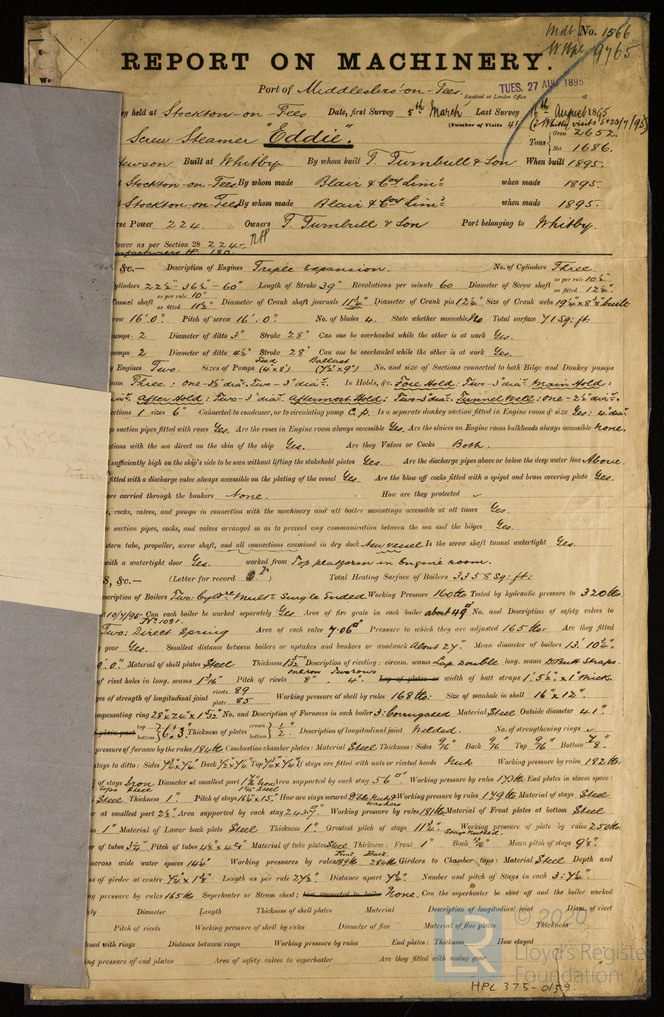 Mdb No. 1566
9765
REPORT ON MACHINERY.
Port of Middlesbro'-on-Tees.
TUES. 27 AUG 1895
Received at London Office
held at Stockton-on-Tees Date, first Survey 5th March Last Survey 16th August 1895
(Number of Visits 41
Screw Steamer "Eddie".
Tons Gross 2652.
Net 1686.
Built at Whitby By whom built T. Turnbull & Son When built 1895.
Stockton-on-Tees By whom made Blair & Coy Limd when made 1895.
Stockton-on-Tees By whom made Blair & Coy Limd when made 1895.
Power 224. Owners T. Turnbull & Son Port belonging to Whitby.
Power as per Section 28 224
&c.— Description of Engines Triple Expansion. No. of Cylinders Three.
Cylinders 22½-36½-60" Length of Stroke 39" Revolutions per minute 60 Diameter of Screw shaft as per rule 10½" as fitted 12¼"
Tunnel shaft as per rule 10" as fitted 11½" Diameter of Crank shaft journals 11¾" Diameter of Crank pin 12¼" Size of Crank webs built
16'0" Pitch of screw 16'.0" No. of blades 4. State whether moveable No Total surface 71 Sq: ft
pumps 2 Diameter of ditto 3" Stroke 28" Can one be overhauled while the other is at work Yes.
pumps 2 Diameter of ditto Stroke 28" Can one be overhauled while the other is at work Yes.
Engines Two. Sizes of Pumps Feed (4"x8") Ballast (7½"x9") No. and size of Suctions connected to both Bilge and Donkey pumps
Three: one-3½ diar. Two-3" diar. In Holds, &c. Fore Hold: Two-3" diar. Main Hold:
After Hold: Two-3" diar. Aftermost Hold: Two-3" diar. Tunnel Well: one-2½ diar.
1 sizes 6" Connected to condenser, or to circulating pump C.P. Is a separate donkey suction fitted in Engine room & size Yes: 4" diar.
suction pipes fitted with roses Yes. Are the roses in Engine room always accessible Yes. Are the sluices on Engine room bulkheads always accessible None.
with the sea direct on the skin of the ship Yes. Are they Valves or Cocks Both.
sufficiently high on the ship's side to be seen without lifting the stokehold plates Yes Are the discharge pipes above or below the deep water line Above.
fitted with a discharge valve always accessible on the plating of the vessel Yes Are the blow off cocks fitted with a spigot and brass covering plate Yes.
are carried through the bunkers None. How are they protected
cocks, valves, and pumps in connection with the machinery and all boiler mountings accessible at all times Yes.
suction pipes, cocks, and valves arranged so as to prevent any communication between the sea and the bilges Yes.
stern tube, propeller, screw shaft, and all connections examined in dry dock New vessel Is the screw shaft tunnel watertight Yes.
with a watertight door Yes. worked from Top platform in Engine room.
&c.— (Letter for record ) Total Heating Surface of Boilers 3358 Sq: ft:
Description of Boilers Two: Cylre Mult: Single Ended. Working Pressure 160 lbs Tested by hydraulic pressure to 320 lbs.
10/7/95 Can each boiler be worked separately Yes Area of fire grate in each boiler about 49 No. and Description of safety valves to
No 1091.
Two: Direct Spring Area of each valve 7.06 Pressure to which they are adjusted 165 lbs Are they fitted
gear Yes. Smallest distance between boilers or uptakes and bunkers or woodwork About 27" Mean diameter of boilers 13'.10½".
0'.0" Material of shell plates Steel Thickness Description of riveting: circum. seams Lap Double long. seams D. Butt Straps.
of rivet holes in long. seams Pitch of rivets 8" 4" width of butt straps 1'.5½" x 1" thick.
of strength of longitudinal joint rivets 89 plate 85 Working pressure of shell by rules 168 lbs: Size of manhole in shell 16" x 12".
Compensating ring No. and Description of Furnaces in each boiler 3: Corrugated Material Steel Outside diameter 41"
6'.3" Thickness of plates crown bottom ½" Description of longitudinal joint Welded. No. of strengthening rings
pressure of furnace by the rules 184 lbs Combustion chamber plates: Material Steel Thickness: Sides 9/16" Back 9/16" Top 9/16" Bottom
stays to ditto: Sides Back Top If stays are fitted with nuts or riveted heads Nuts Working pressure by rules 182 lbs.
of stays Iron Diameter at smallest part Area supported by each stay 56 Working pressure by rules 170 lbs End plates in steam space:
Steel Thickness 1" Pitch of stays How are stays secured Working pressure by rules 179 lbs Material of stays Steel
at smallest part 2½" Area supported by each stay Working pressure by rules 181 lbs Material of Front plates at bottom Steel
1" Material of Lower back plate Steel Thickness 1" Greatest pitch of stays Working pressure of plate by rules 250 lbs.
of tubes 3¼" Pitch of tubes Material of tube plates Steel Thickness: Front 1" Back Mean pitch of stays 9⅛".
across wide water spaces 14½" Working pressures by rules Front 189 lbs Back 284 lbs Girders to Chamber tops: Material Steel Depth and
of girder at centre Length as per rule 27½" Distance apart 7½". Number and pitch of Stays in each 3: 7½".
pressure by rules 165 lbs Superheater or Steam chest; how connected to boiler None. Can the superheater be shut off and the boiler worked
Diameter Length Thickness of shell plates Material Description of longitudinal joint Diam. of rivet
Pitch of rivets Working pressure of shell by rules Diameter of flue Material of flue plates Thickness
with rings Distance between rings Working pressure by rules End plates: Thickness How stayed
pressure of end plates Area of safety valves to superheater Are they fitted with easing gear
LR
© 2020
Lloyd's Register
Foundation
HPL 375-0159.